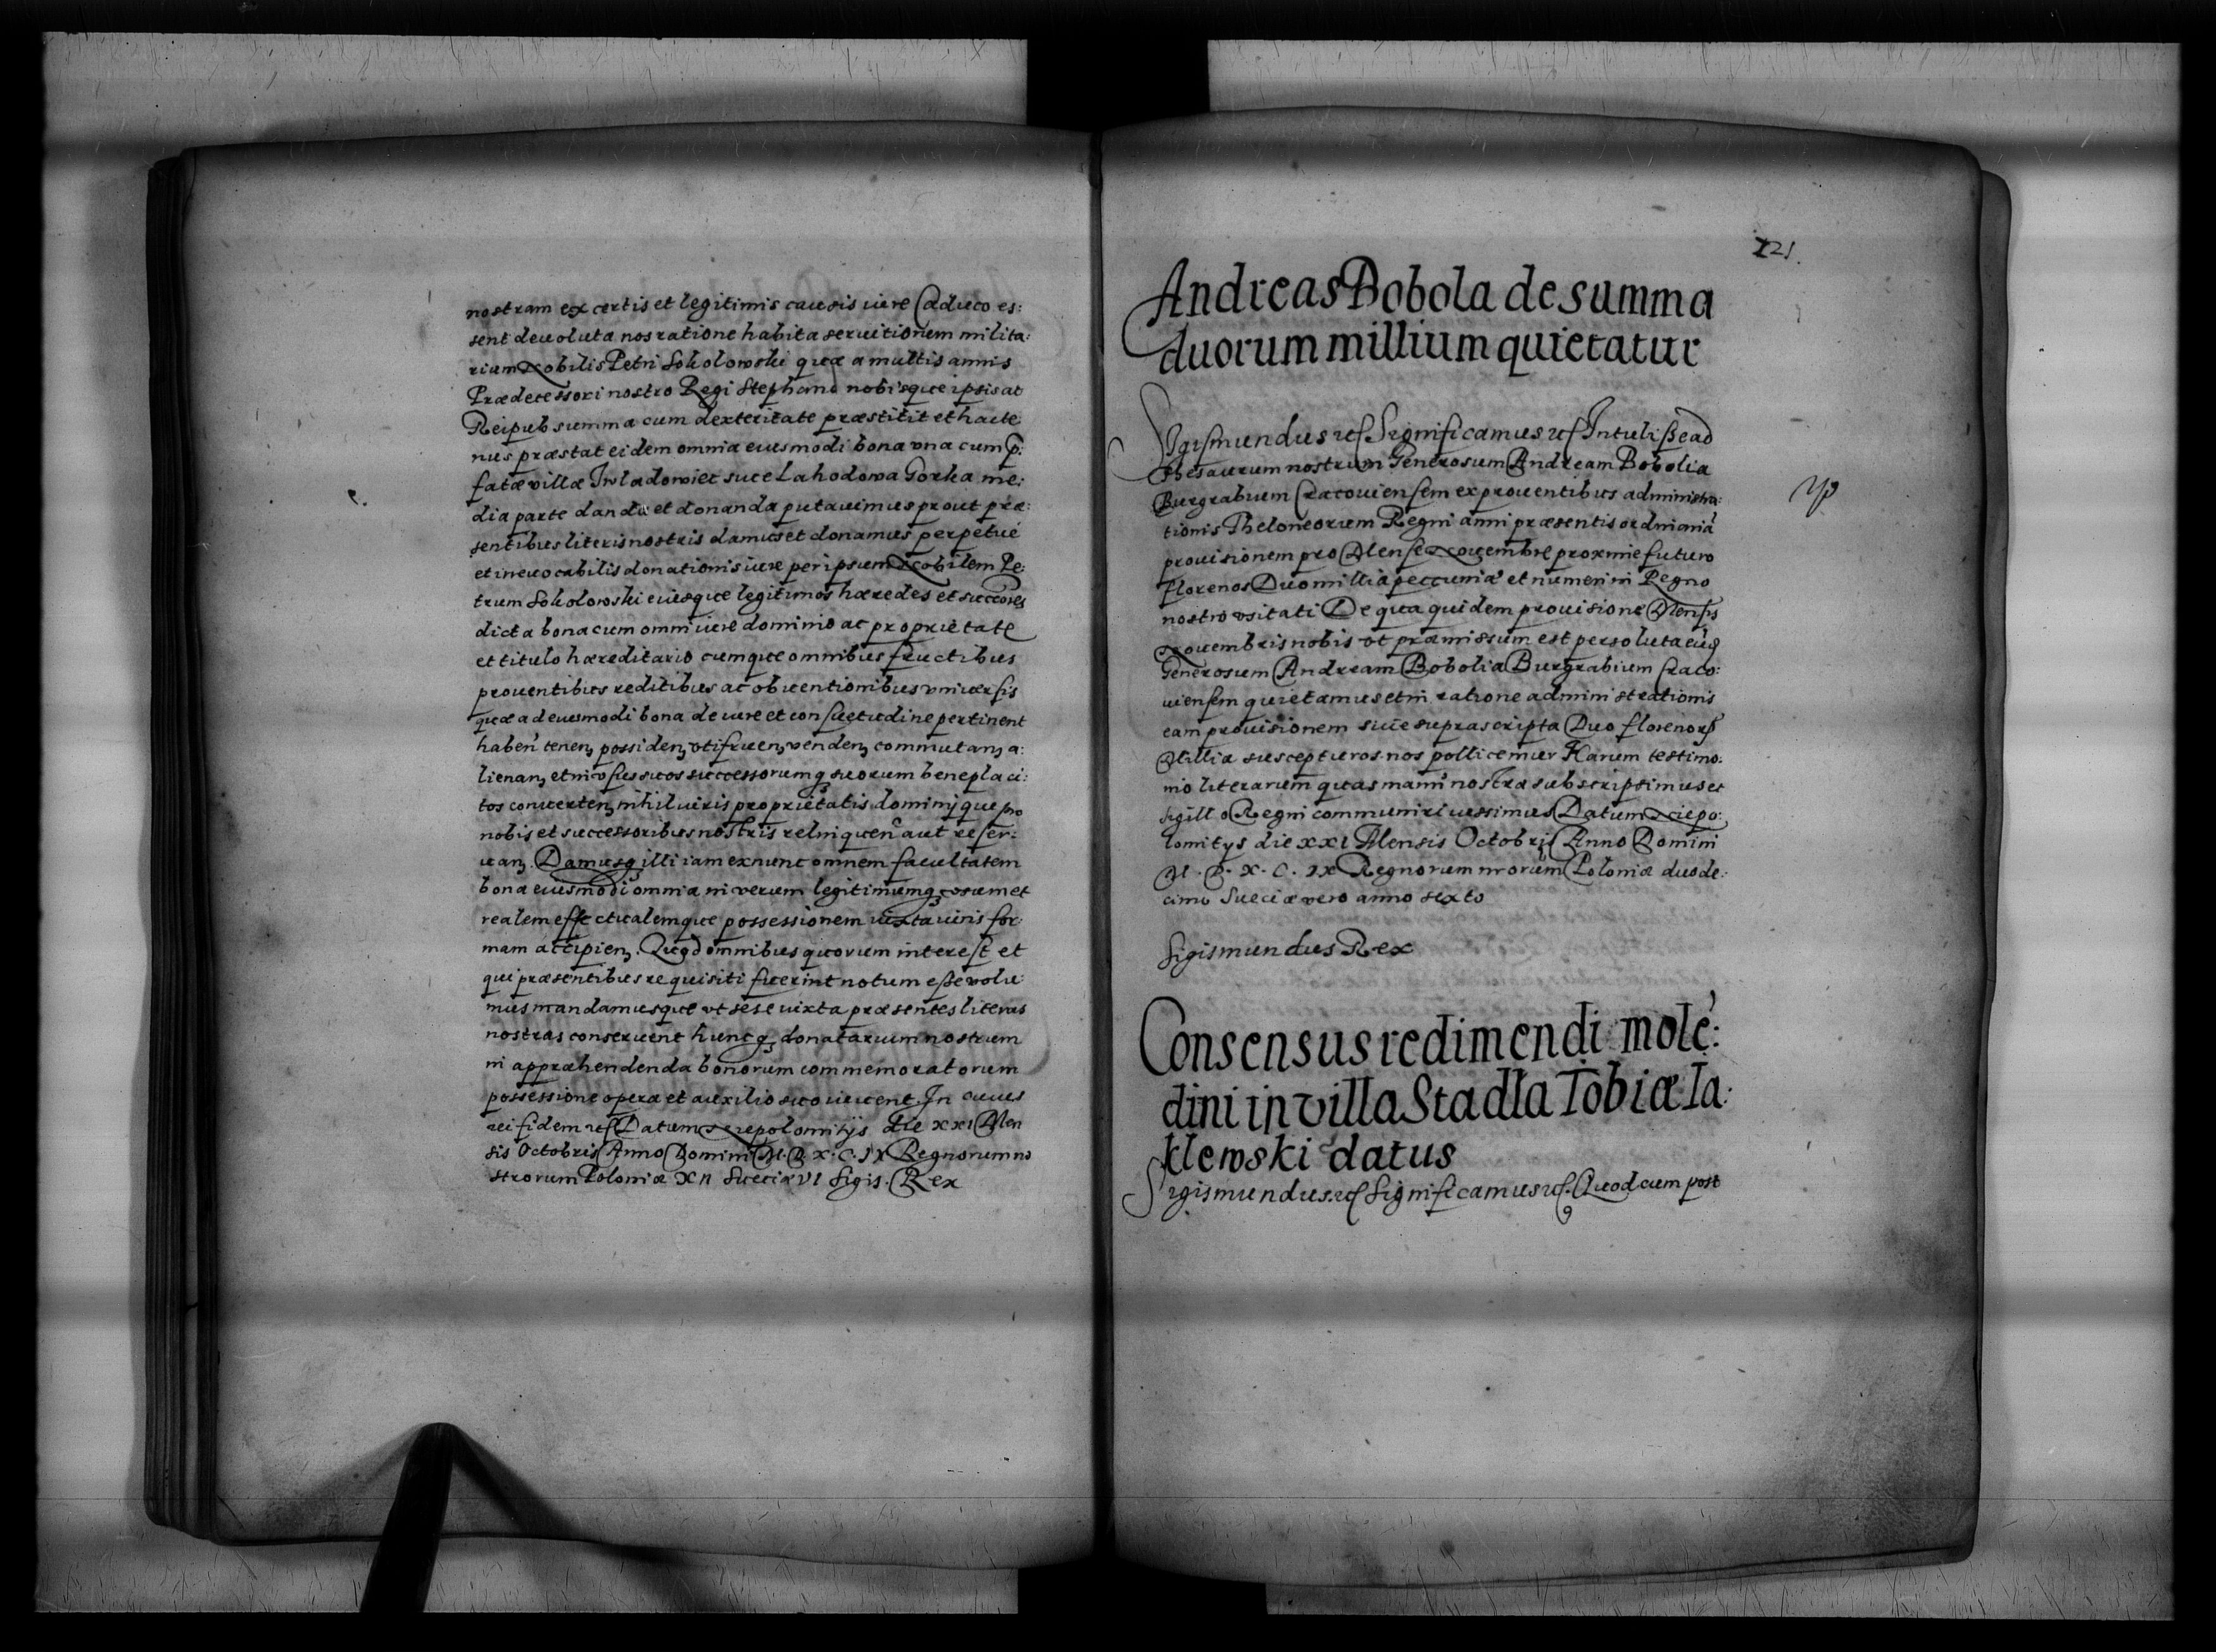 nostram ex certis et legitimis causis iure Caduco es:
sent deuoluta nos ratione habita seruitionem milita:
rium Nobilis Petri Sokolowski quæ a multis annis
Prædecessori nostro Regi Stephano nobisque ipsis ac
Reipub summa cum dexteritate præstitit et hacte
nus præstat eidem omnia eiusmodi bona vna cum p:
fatæ villæ Iwladowiec siue Lahodowa Gorka me:
dia parte danda et donanda putauimus prout præ:
sentibus literis nostris damus et donamus perpetue
et ineuocabilis donationis iure per ipsum Nobilem Pe:
trum Sokolowski eiusque legitimos hæredes et succores
dicta bona cum omni iure dominio ac proprietate
et titulo hæreditario cumque omnibus fructibus
prouentibus reditibus ac obuentionibus vniuersis
quæ ad eiusmodi bona de iure et consuetudine pertinent
haben tenen possiden vtifruen venden commutan a:
lienan et in vsus suos successorumq suorum beneplaci:
tos conuerten nihil iuris proprietatis dominijque pro
nobis et successoribus nostris relinquen aut reser:
uan. Damusq illi iam ex nunc omnem facultatem
bona eiusmodi omnia in verum legitimumq vsum et
realem effectualemque possessionem iuxta iuris for:
mam accipien. Quod omnibus quorum interest et
qui præsentibus requisiti fuerint notum esse volu:
mus mandamusque vt sese iuxta præsentes literas
nostras conseruent huncq donatarium nostrum
in appræhendenda bonorum commemoratorum
possessione opera et auxilio suo iuuent. In cuius
rei fidem etc Datum Niepolomitijs die XXI Men
sis Octobris Anno Domini M.D.X.C.IX Regnorum no
strorum Poloniæ XII Sueciæ VI Sigis. Rex
121.
Andreas Bobola de summa
duorum millium quietatur
Sigismundus etc Significamus etc Intulisse ad
Thesaurum nostrum Generosum Andream Bobolia
Burgrabium Cracouiensem ex prouentibus administra:
tionis Theloneorum Regni anni præsentis ordinariã
prouisionem pro Mense Nouembre proxime futuro
florenos Duo millia peccuniæ et numeri in Regno
nostro vsitati De qua quidem prouisione Mensis
Nouembris nobis vt præmissum est persoluta eūd
Generosum Andream Bobolia Burgrabium Craco:
uiensem quietamus et in ratione administrationis
eam prouisionem siue suprascripta Duo florenorū
Millia suscepturos nos pollicemur Harum testimo:
nio literarum quas manu nostra subscripsimus et
sigillo Regni communiri iussimus Datum Niepo:
lomitys die XXI Mensis Octobris Anno Domini
M.D.X.C.IX Regnorum nrorum Poloniæ duode:
cimo Sueciæ vero anno sexto
Sigismundus Rex
Consensus redimendi mole:
dini in villa Stadla Tobiæ Ia:
klewski datus
Sigismundus etc Significamus etc. Quod cum post